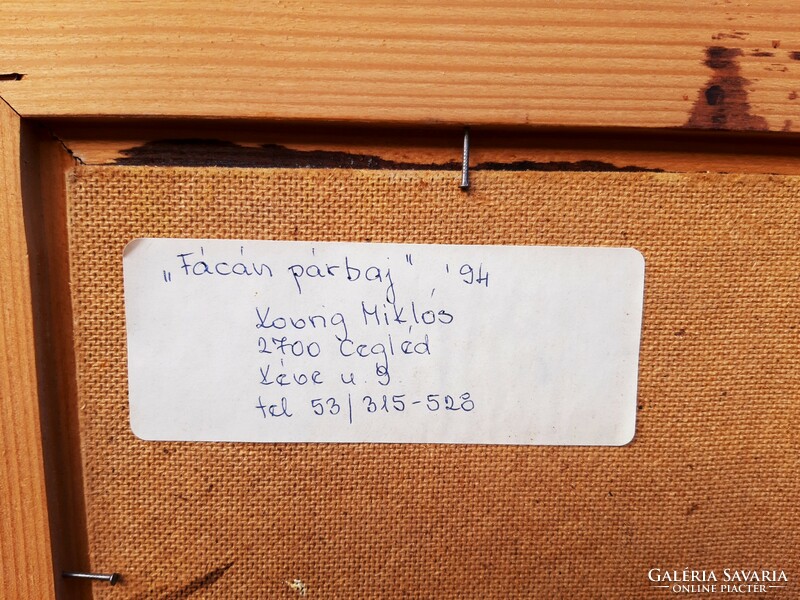 „Fácán párbaj" '94
Kovrig Miklós
2700 Cegléd
Kéve u. 9.
tel 53/315-528
GALÉRIA SAVARIA
ONLINE PIACTÉR